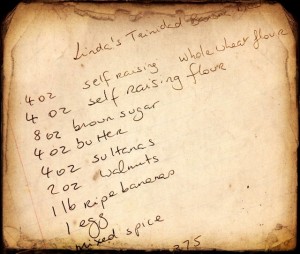 Linda's Trinidad Banana
4 oz self raising whole wheat flour
4 oz self raising flour
8 oz brown sugar
4 oz butter
4 oz sultanas
2 oz walnuts
1 lb ripe bananas
1 egg
mixed spice
275